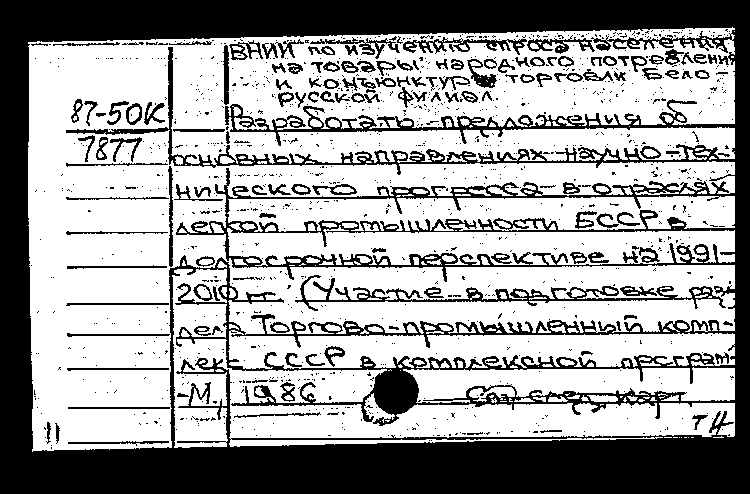 ВНИИ по изучению спроса населения
на товары народного потребления
и конъюнктуры торговли Бело-
русской филиал.
87-50К
7877
Разработать предложения об
основных направлениях научно-тех-
нического прогресса в отраслях
легкой промышленности БССР в
долгосрочной перспективе на 1991-
2010 гг. (Участие в подготовке раз-
дела Торгово-промышленный комп-
лекс СССР в комплексной програм-
-М., 1986.
См. след. карт.
11